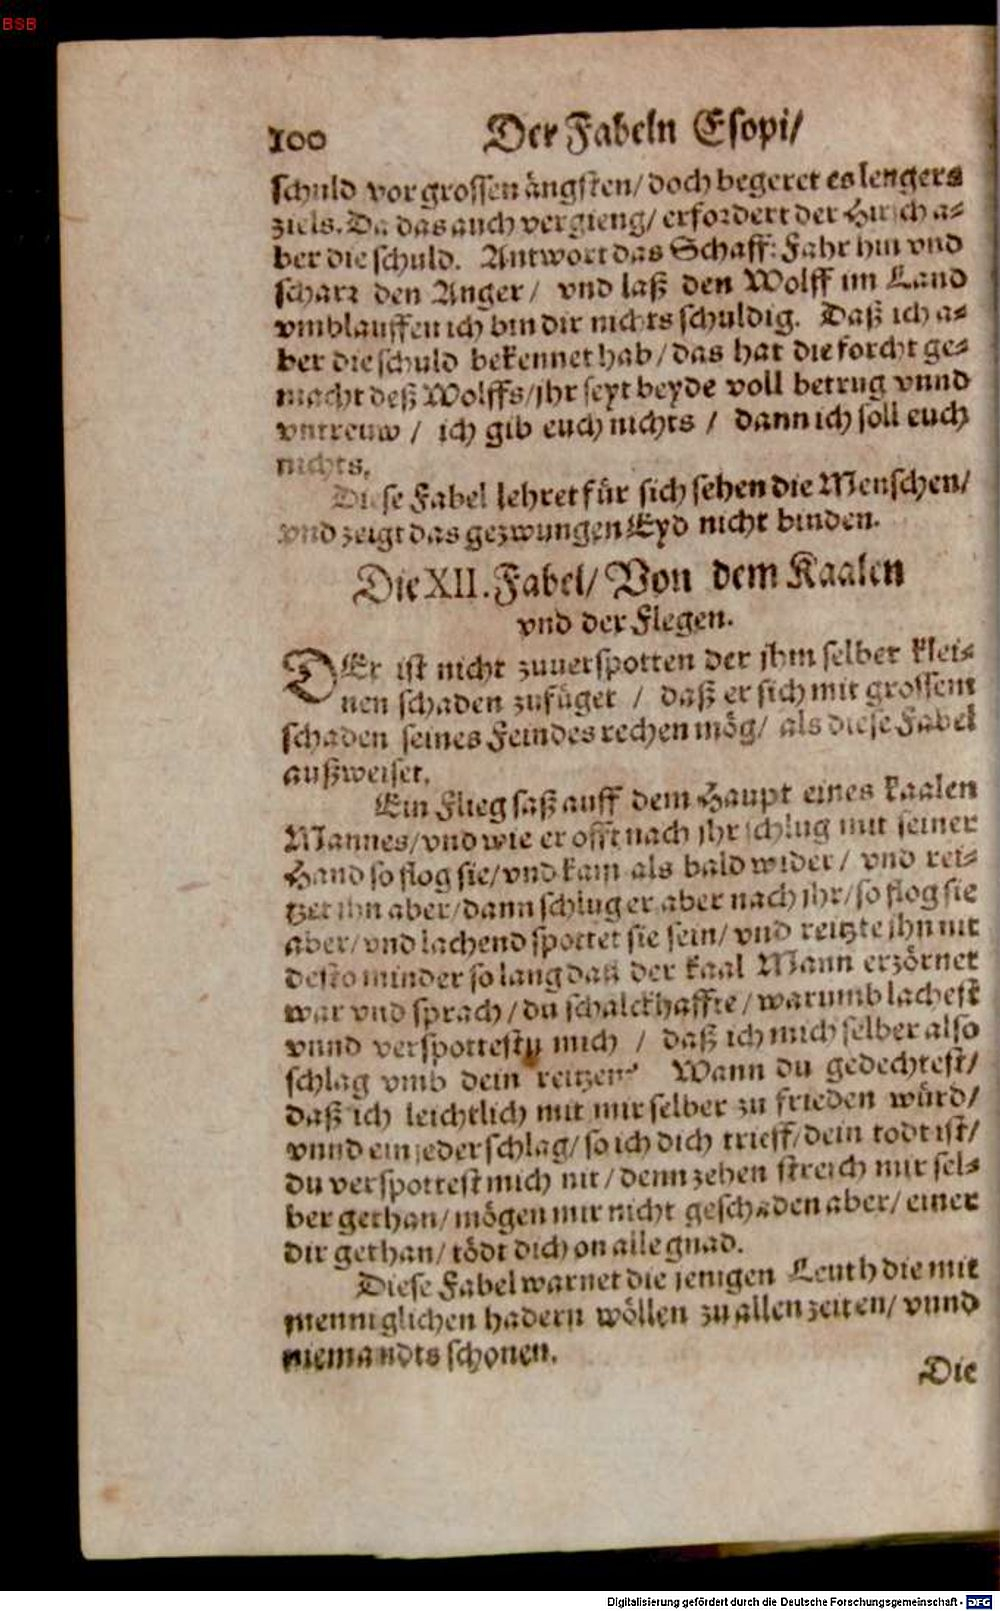 BSB
100 Der Fabeln Esopi/
schuld vor grossen ängsten/ doch begeret es lengers
ziels. Da das auch vergieng/ erfordert der Hirsch a=
ber die schuld. Antwort das Schaff: Fahr hin vnd
scharr den Anger/ vnd laß den Wolff im Land
vmblauffen ich bin dir nichts schuldig. Daß ich a=
ber die schuld bekennet hab/ das hat die forcht ge=
macht deß Wolffs/ jhr seyt beyde voll betrug vnnd
vntreuw/ ich gib euch nichts/ dann ich soll euch
nichts.
Diese Fabel lehret für sich sehen die Menschen/
vnd zeigt das gezwungen Eyd nicht binden.
Die XII. Fabel/ Von dem Kaalen
vnd der Flegen.
DEr ist nicht zuuerspotten der jhm selber klei=
nen schaden zufüget/ daß er sich mit grossem
schaden seines Feindes rechen mög/ als diese Fabel
außweiset.
Ein Flieg saß auff dem Haupt eines kaalen
Mannes/ vnd wie er offt nach jhr schlug mit seiner
Hand so flog sie/ vnd kam als bald wider/ vnd rei=
tzet ihn aber/ dann schlug er aber nach jhr/ so flog sie
aber/ vnd lachend spottet sie sein/ vnd reitzte jhn nit
desto minder so lang daß der kaal Mann erzörnet
war vnd sprach/ du schalckhaffte/ warumb lachest
vnnd verspottestu mich/ daß ich mich selber also
schlag vmb dein reitzen? Wann du gedechtest/
daß ich leichtlich mit mir selber zu frieden würd/
vnnd ein jeder schlag/ so ich dich trieff/ dein todt ist/
du verspottest mich nit/ denn zehen streich mir sel=
ber gethan/ mögen mir nicht geschaden aber/ einer
dir gethan/ tödt dich on alle gnad.
Diese Fabel warnet die jenigen Leuth die mit
menniglichen hadern wöllen zu allen zeiten/ vnnd
niemandts schonen.
Die
Digitalisierung gefördert durch die Deutsche Forschungsgemeinschaft - DFG